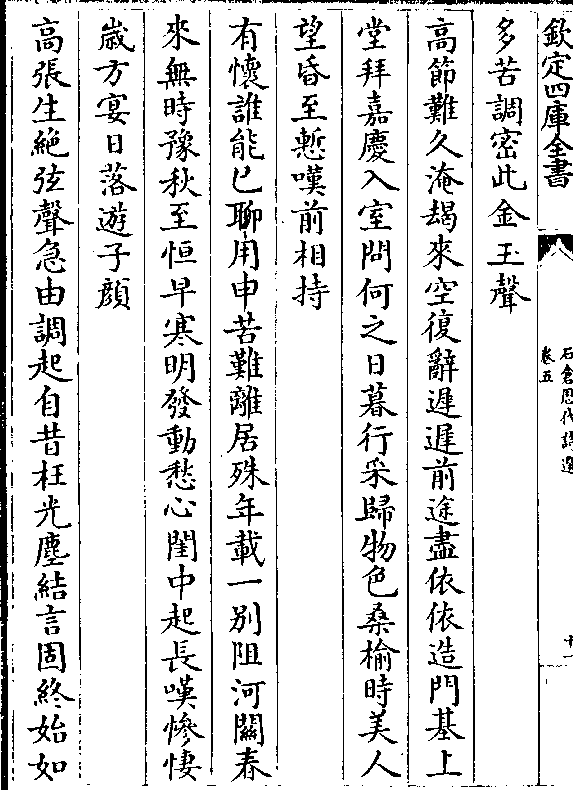 欽定四庫全書
石倉歷代詩選
卷五
十一
多苦調密此金玉聲
高節難久淹朅來空復辭遲遲前途盡依依造門基上
堂拜嘉慶入室問何之日暮行采歸物色桑榆時美人
望昏至慙嘆前相持
有懷誰能已聊用申苦難離居殊年載一别阻河關春
來無時豫秋至恒早寒明發動愁心閨中起長嘆慘悽
歳方宴日落遊子顔
高張生絶弦聲急由調起自昔枉光塵結言固終始如